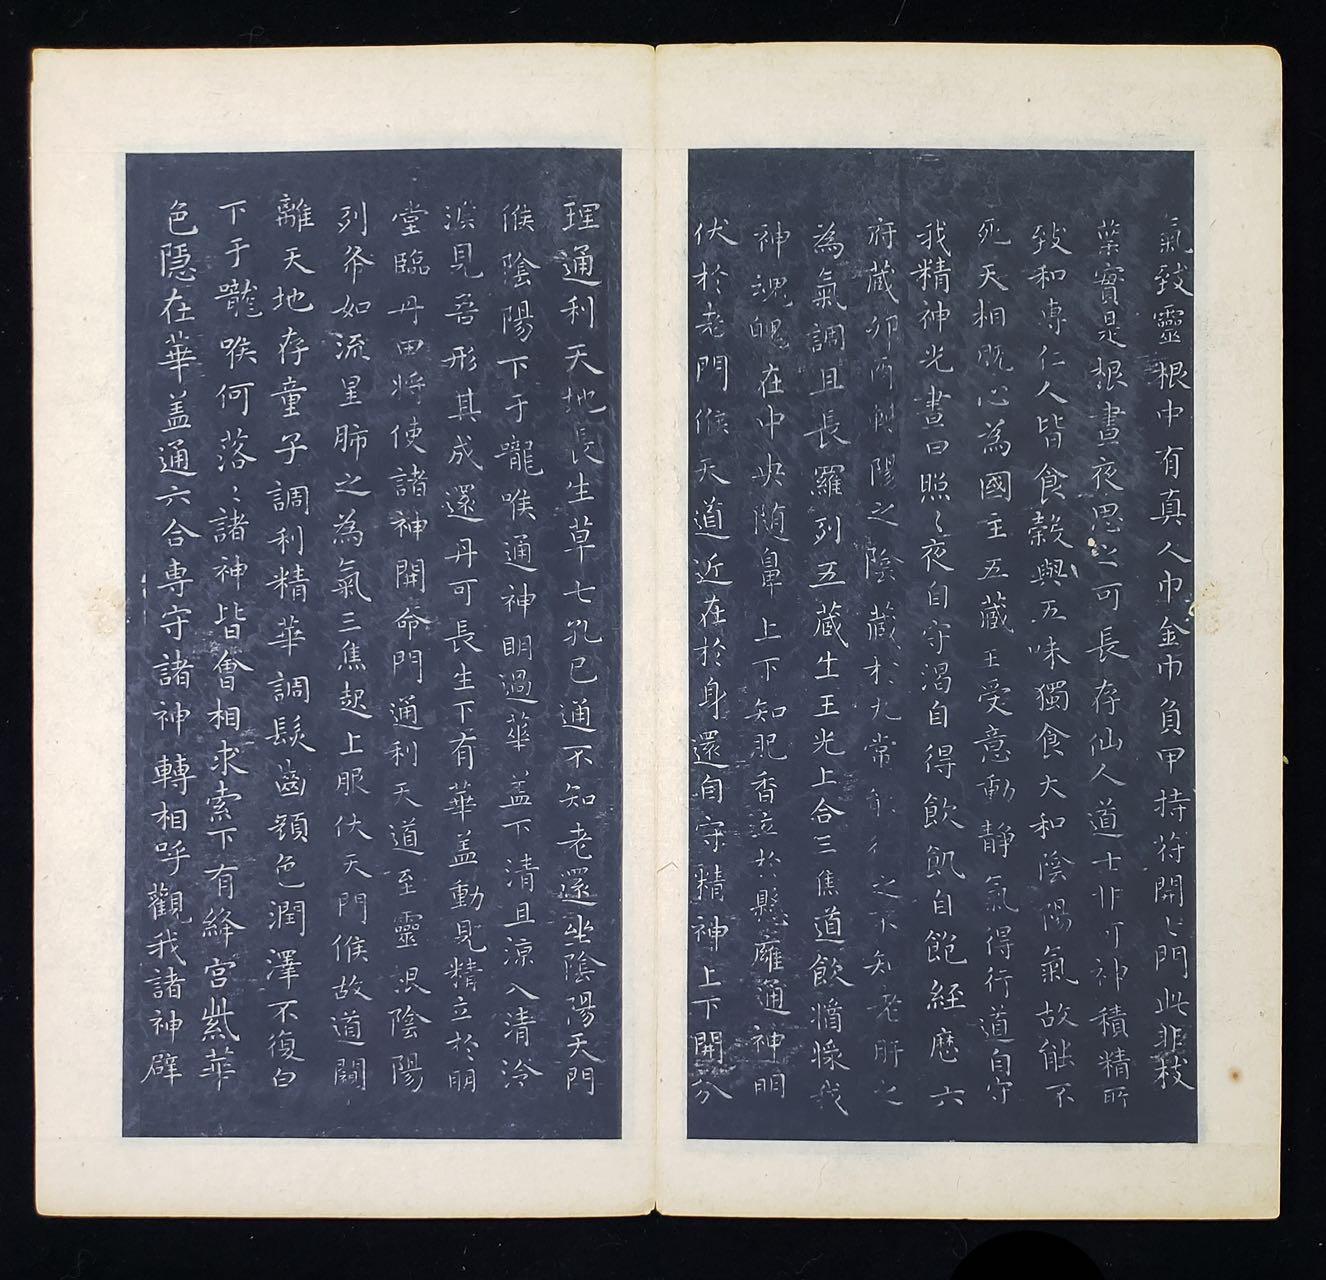 氣致靈根中有真人巾金巾負甲持符開〻門此非枝
葉實是根晝夜思之可長存仙人道士非可神積精所
致和專仁人皆食穀與五味獨食大和陰陽氣故能不
死天相既心為國主五藏王受意動靜氣得行道自守
我精神光晝日照〻夜自守渴自得飲飢自飽經歷六
府藏卯酉陽之陰藏於九常能行之不知老肝之
為氣調且長羅列五藏生王光上合三焦道飲醬漿我
神魂魄在中央随鼻上下知肥香立於懸廱通神明
伏於老門候天道近在於身還自守精神上下開分
理通利天地長生草七孔已通不知老還坐陰陽天門
候陰陽下于嚨喉通神明過華盖下清且涼入清泠
淵見吾形其成還丹可長生下有華盖動見精立於明
堂臨丹田將使諸神開命門通利天道至靈根陰陽
列布如流星肺之為氣三焦起上服伏天門候故道闚
離天地存童子調利精華調髮齒顏色潤澤不復白
下于嚨喉何落〻諸神皆會相求索下有絳宮紫華
色隱在華盖通六合專守諸神轉相呼觀我諸神辟